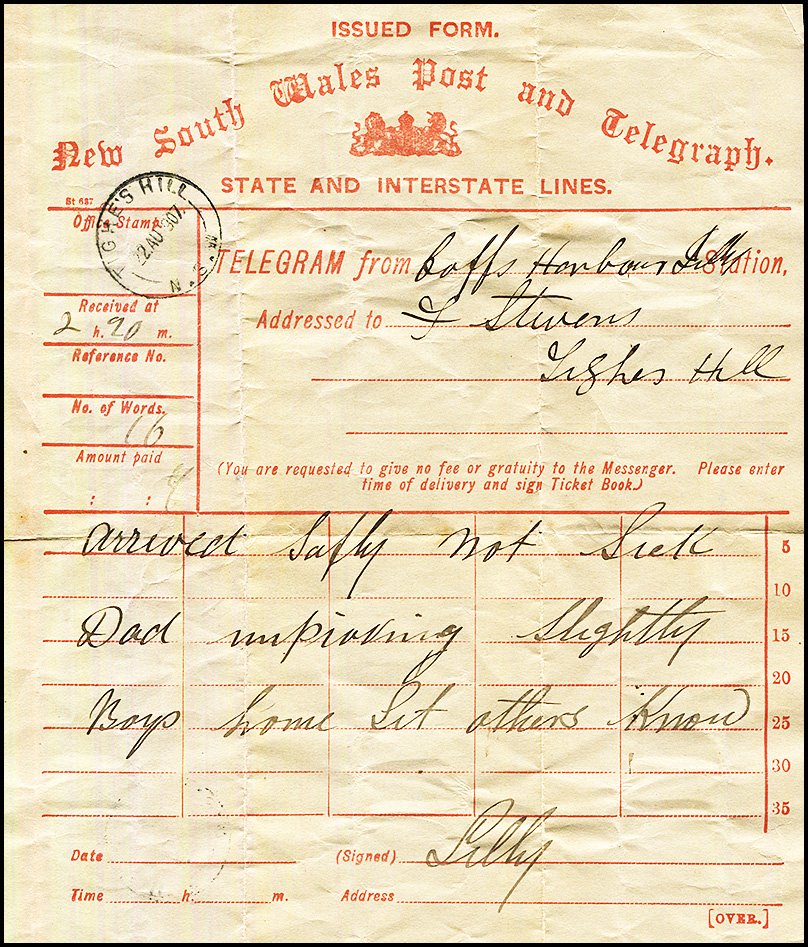 ISSUED FORM.
New South Wales Post and Telegraph.
STATE AND INTERSTATE LINES.
St 637
Office Stamp
TIGHE'S HILL N.S.W
22 AU 907
TELEGRAM from Coffs Harbour Station,
Received at
2 h. 20 m.
Addressed to F Stevens
Reference No.
Tighes Hill
No. of Words.
16
Amount paid
: :
(You are requested to give no fee or gratuity to the Messenger. Please enter
time of delivery and sign Ticket Book.)
Arrived Safly not Sick 5
10
Dad improving Slightly 15
20
Boys home Let others Know 25
30
35
Date (Signed) Lilly
Time h. m. Address
[OVER.]